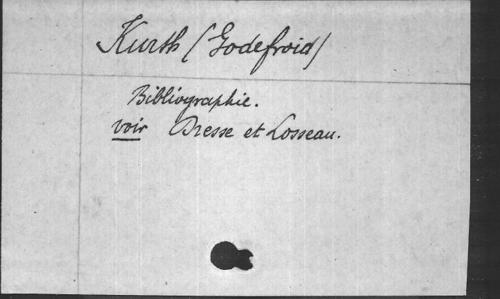 Kurth (Godefroid)
Bibliographie.
voir Dresse et Losseau.